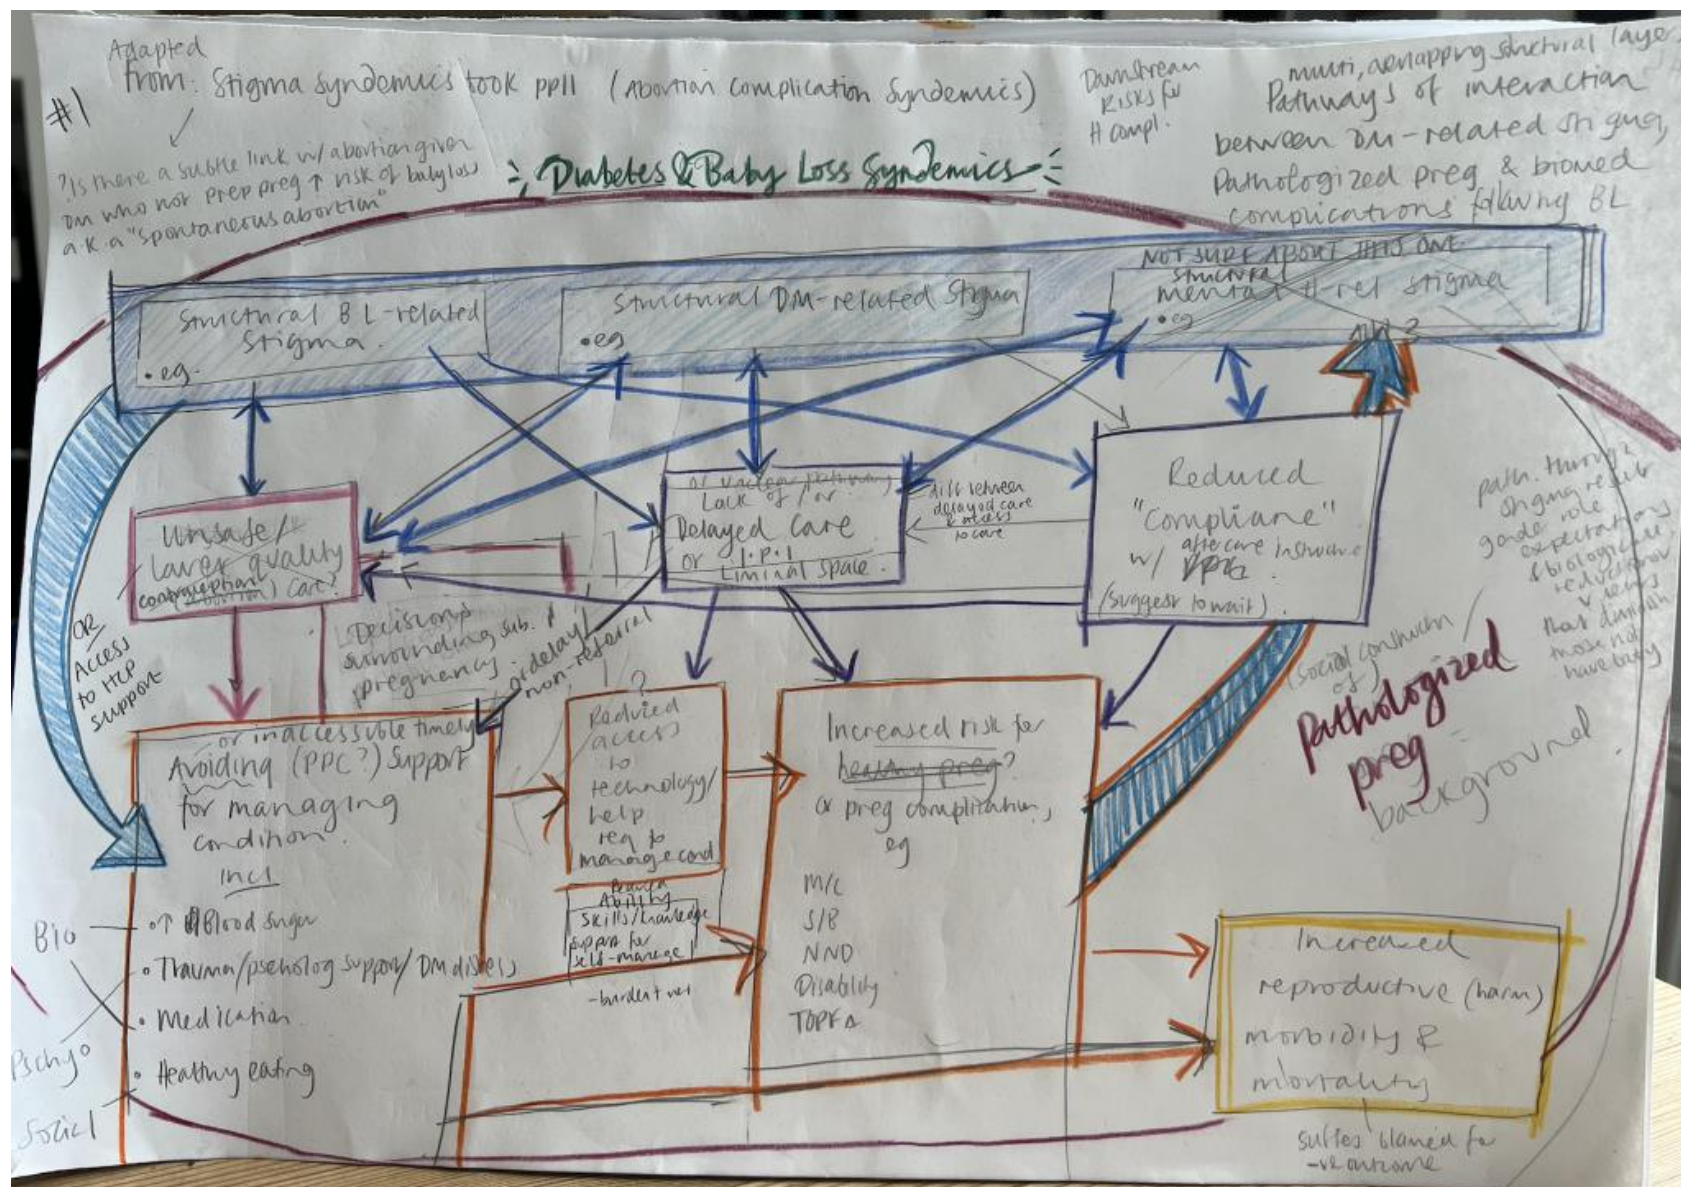 #1
Adapted
from: Stigma Syndemics took pp11 (Abortion Complication Syndemics)
?Is there a subtle link w/ abortion given
DM who not prep preg ↑ risk of babyloss
a.k.a "spontaneous abortion"
Diabetes & Baby Loss Syndemics
Downstream
Risks for
H compl.
multi, overlapping structural layers
Pathways of interaction
between DM-related stigma,
Pathologized preg & biomed
complications following BL
Structural BL-related
Stigma.
• eg.
Structural DM-related Stigma
• eg
NOT SURE ABOUT THIS ONE
Structural
mental H-rel stigma
• eg
Unsafe/
Lower quality
contraception
(abortion) care?
or unclear pathway
Lack of / or
Delayed Care
or I.P.I
Liminal Space.
diff between
delayed care
& access
to care
Reduced
"Compliance"
aftercare
w/ instructions
(suggest to wait)
path. through
stigma result
gender role
expectations
& biological
that diminish
those not
have baby
OR
Access
to HCP
support
Decisions
surrounding sub.
pregnancy
or delay/
non-referral
(social construction
of)
Pathologized
preg
background
or inaccessible timely
Avoiding (PPC?) Support
for managing
condition.
incl
• ↑ Blood sugar
• Trauma/psycholog support/DM distress
• Medication
• Healthy eating
Bio
Pschyo
Social
?
Reduced
access
to
technology/
help
req to
manage cond
Reduced
Ability
Skills/knowledge
support for
self-manage
Increased risk for
healthy preg?
or preg complication,
eg
M/C
S/B
NND
Disability
TOPFA
Increased
reproductive (harm)
morbidity &
mortality
blamed for
-ve outcome